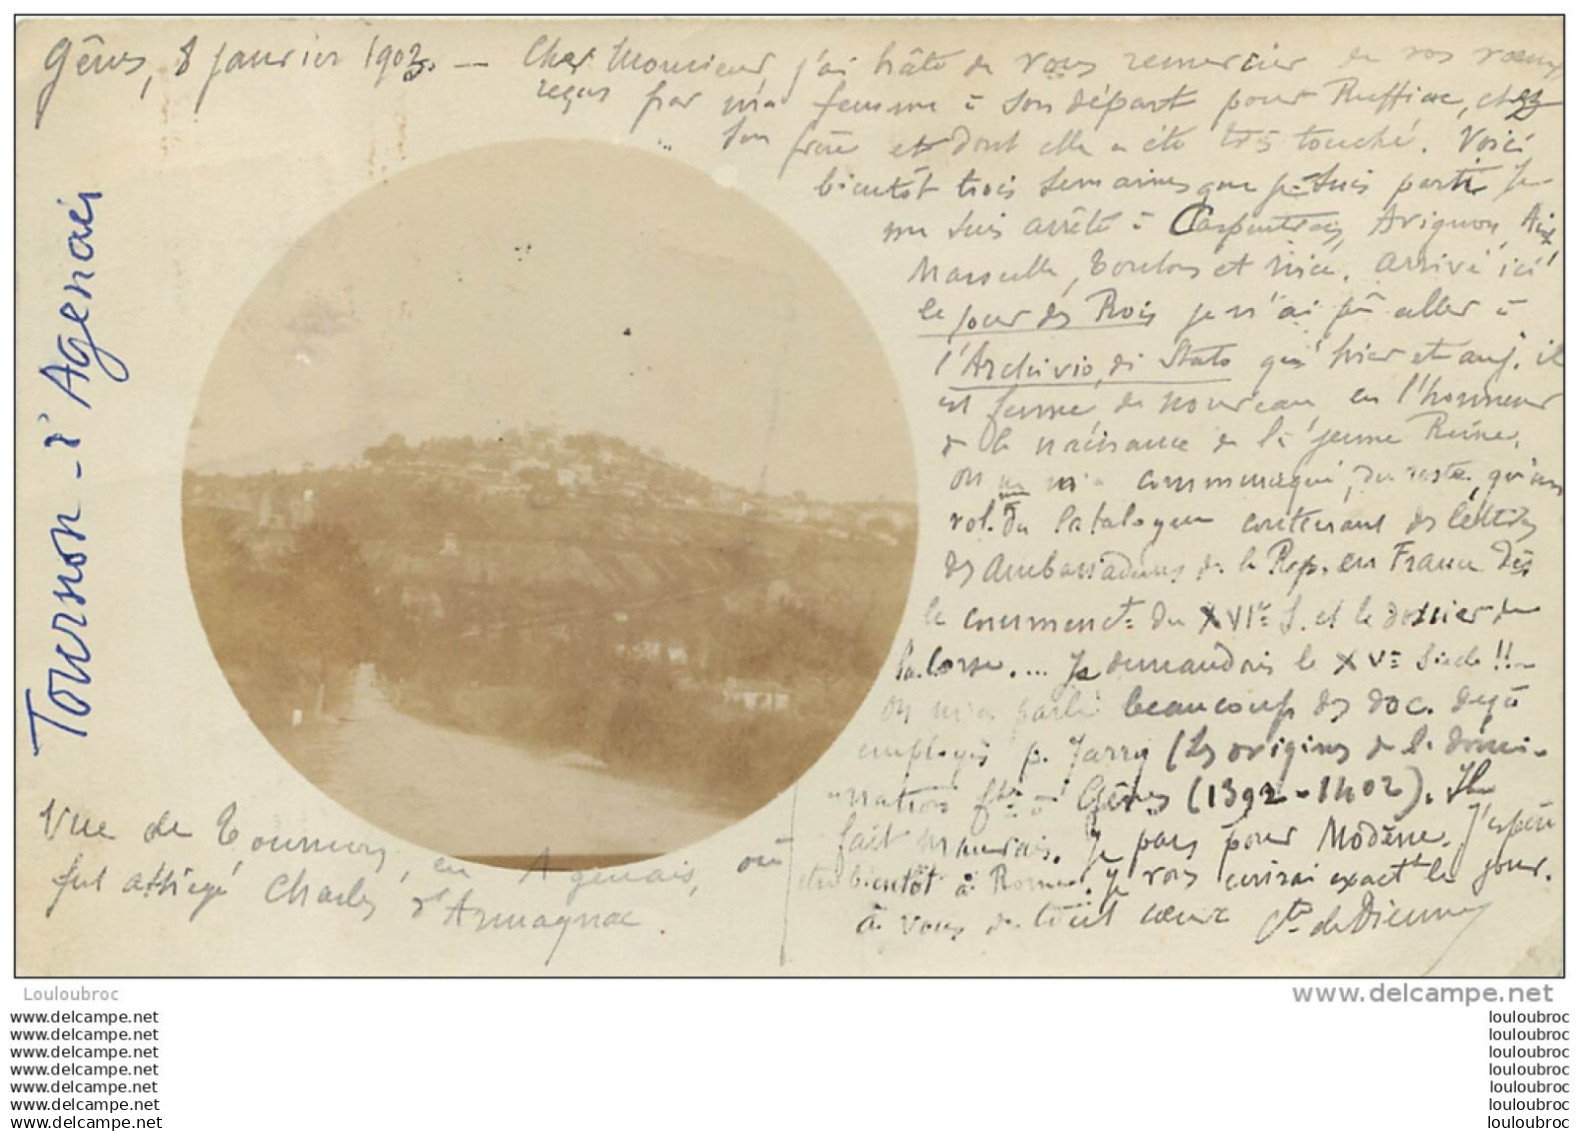 Gênes, 8 janvier 1903. — Cher Monsieur, j'ai hâte de vous remercier de vos vœux
reçus par ma femme à son départ pour Ruffiac, chez
son frère et dont elle a été très touchée. Voici
bientôt trois semaines que je suis parti. Je
me suis arrêté à Carpentras, Avignon, Aix
Marseille, Toulon et Nice. Arrivé ici
le jour des Rois je n'ai pû aller à
l'Archivio di Stato qu'hier et auj. il
est fermé de nouveau en l'honneur
de la naissance de la jeune Reine.
On ne m'a communiqué, du reste, qu'un
vol. du Catalogue contenant des lettres
des Ambassadeurs de la Rép. en France dès
le commenct du XVIe S. et le dossier de
la Corse.... Je demandais le XVe Siècle !!—
On m'a parlé beaucoup des doc. dejà
employés p. Jarry (Les origines de la domi-
nation fse à Gênes (1392-1402). Il
fait mauvais. Je pars pour Modène. J'espère
être bientôt à Rome. Je vous écrirai exactt le jour.
à vous de tout cœur Cte de Dienne
Tournon-d'Agenais
Vue de Tournon, en Agenais, où
fut assiégé Charles d'Armagnac.
Louloubroc
www.delcampe.net
www.delcampe.net
www.delcampe.net
www.delcampe.net
www.delcampe.net
www.delcampe.net
www.delcampe.net
www.delcampe.net
louloubroc
louloubroc
louloubroc
louloubroc
louloubroc
louloubroc
louloubroc